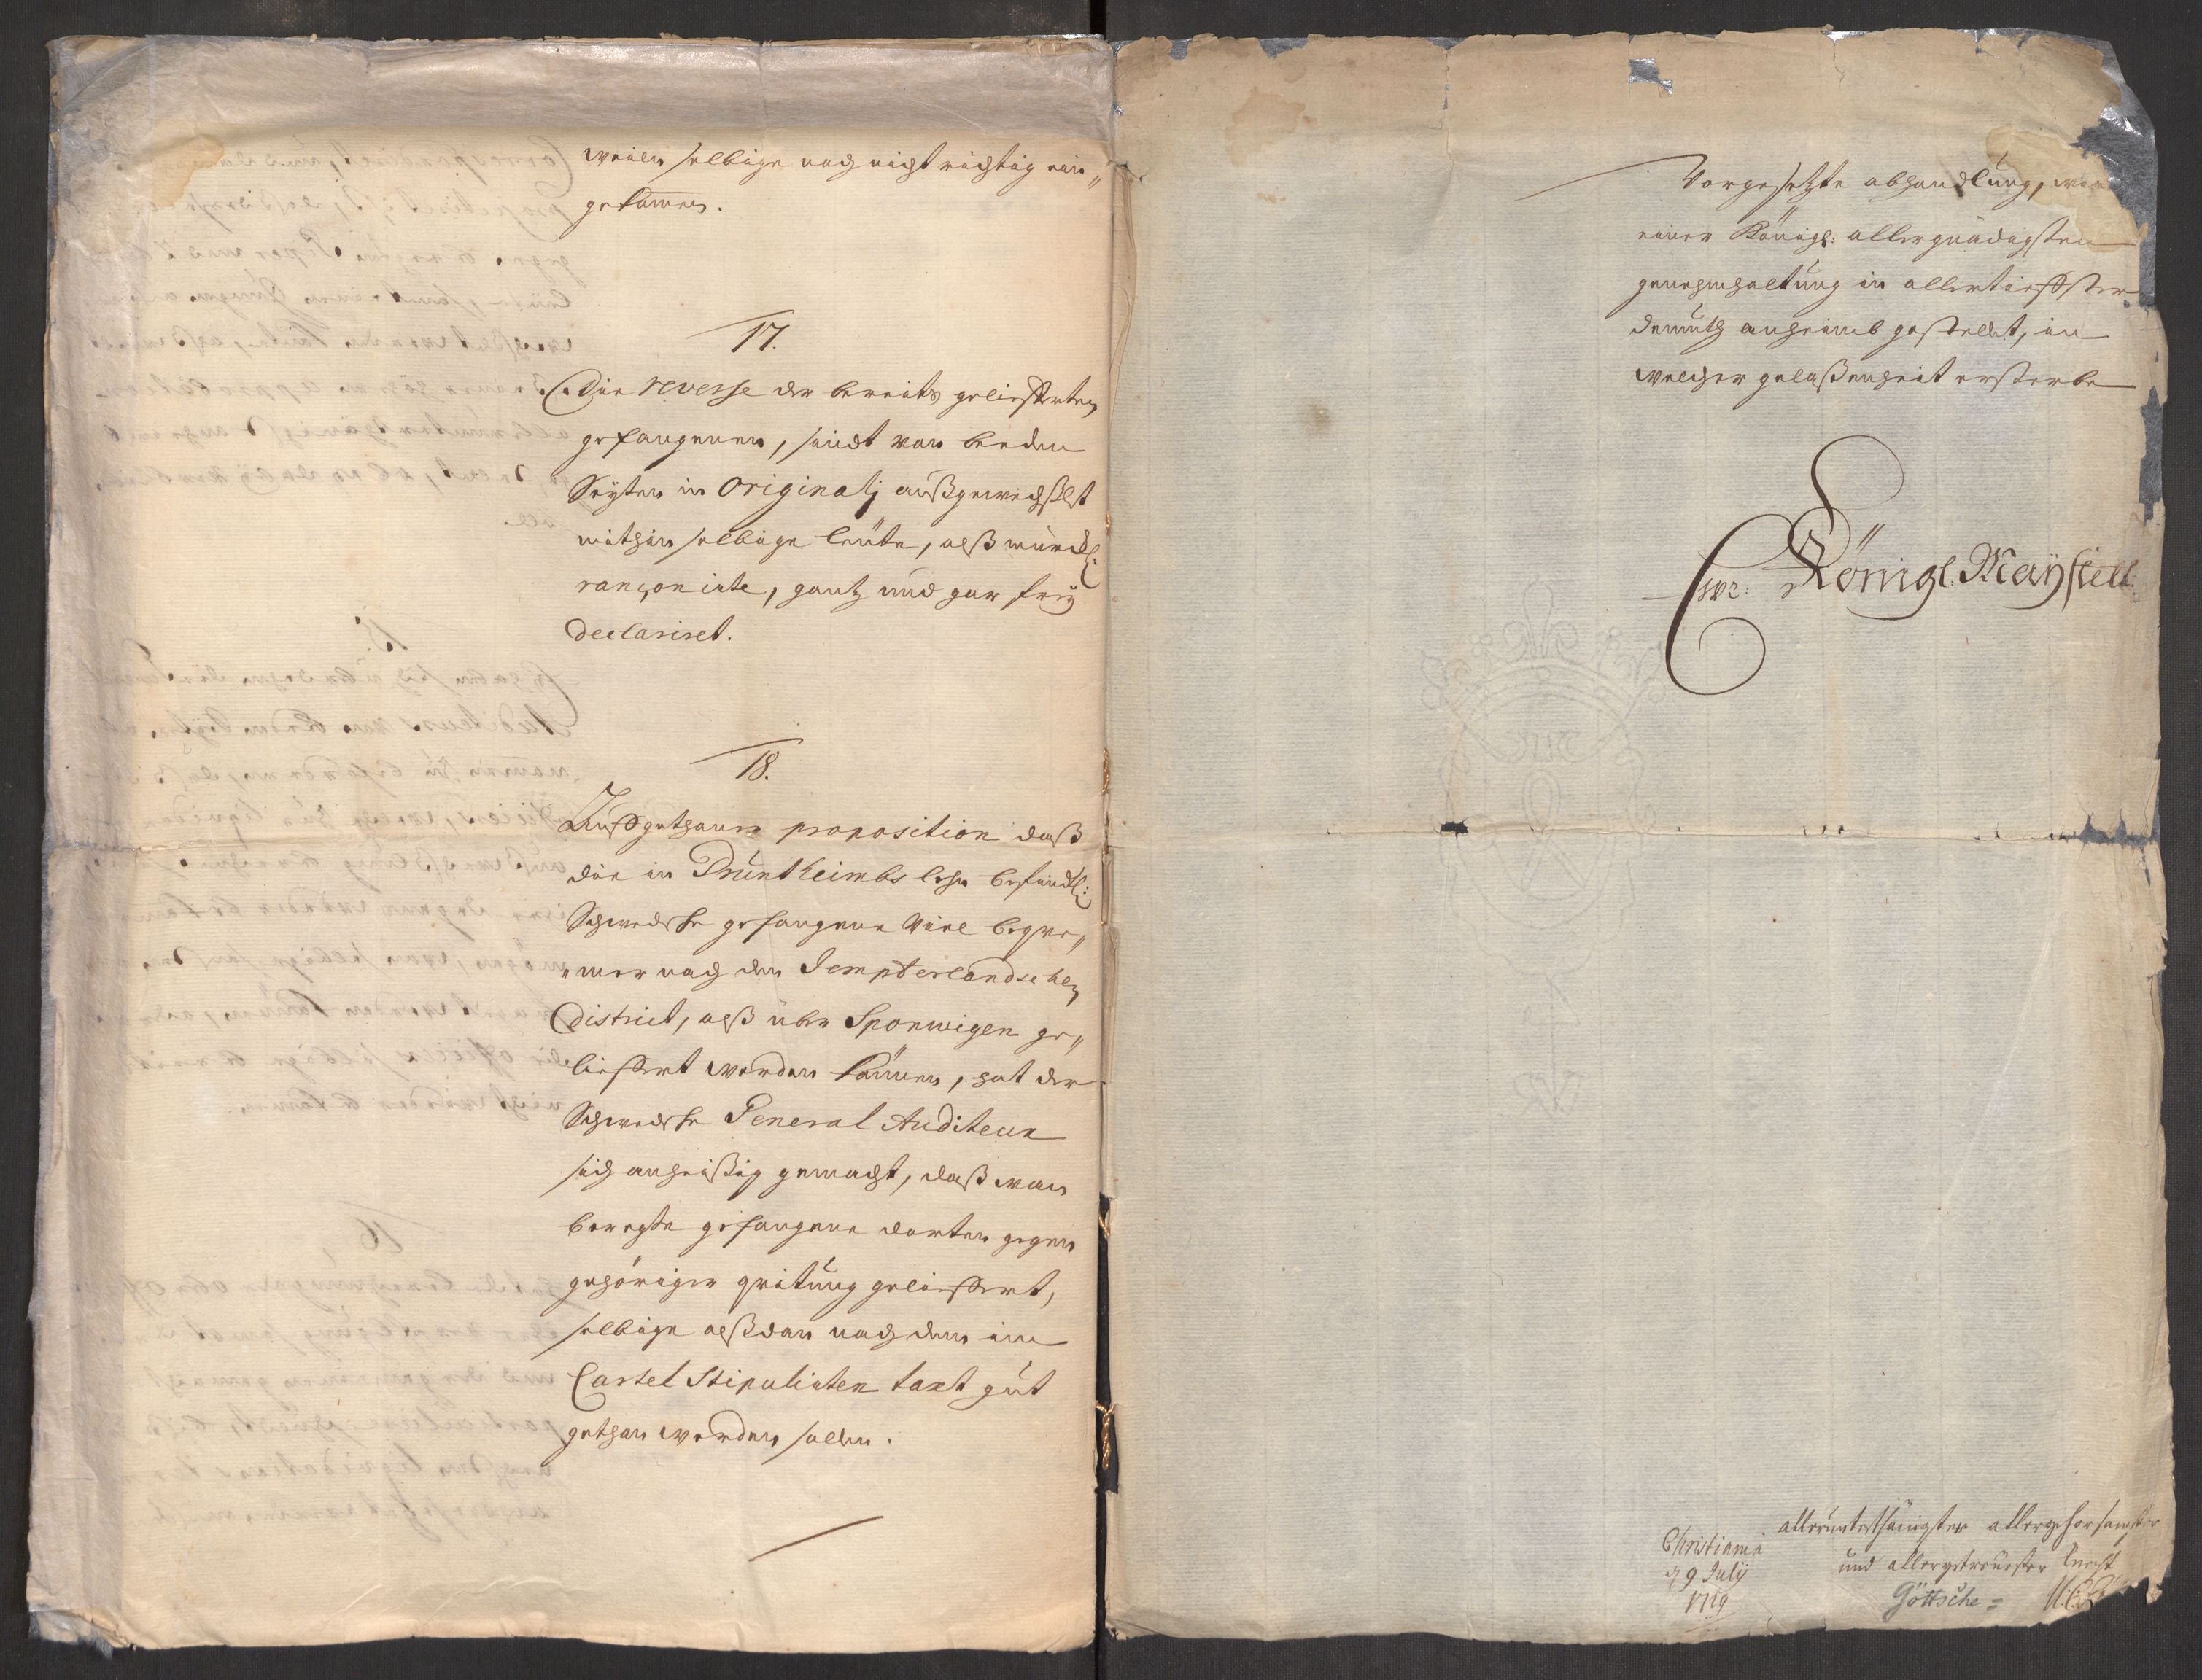 weilen selbige noch nicht richtig ein„
gekom̅en.
17.
Die reverse der bereits gelieferten
gefangenen, sindt von beeden
Seyten in Originalj außgewechßelt
mithin selbige leüte, alß würckl:
rançonirte, gantz und gar frey
declariret.
18.
Auff gethaner proposition daß
die in Druntheimbs lehn befindl:
Schwedsche gefangene viel beqve„
„mer nach den Jempterlandschen
District, alß über Sponwigen ge„
lieffert werden können, hat der
Schwedsche General Auditeur
sich anheißig gemacht, daß wan
beregte gefangene dorten gegen
gehöriger qvitung gelieffert,
selbige alßdan nach dem im
Cartel Stipulirten taxt gut
gethan werden sollen.
Vorgesetzte abhandlung, 
einer Königl: allergnädigsten
genehmhaltung in allertieffster
demuth anheimb gestellet, in
welcher gelaßenheit ersterbe
Ewr: Königl. Mayestett
alleruntethänigster allergehorsambster
und allergetreuester knecht
Göttsche =
Christiania
d 9 Julij
1719